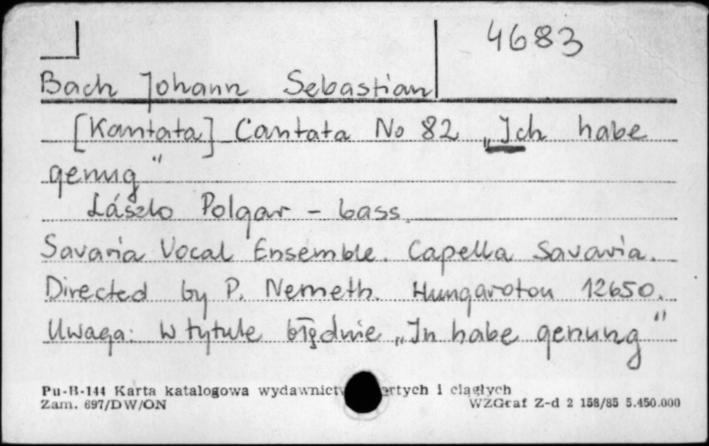 4683
Bach Johann Sebastian
[Kantata] Cantata No 82 „Ich habe
genug"
László Polgar - bass.
Savaria Vocal Ensemble. Capella Savaria.
Directed by P. Nemeth. Hungaroton 12650.
Uwaga: w tytule błędnie „In habe genung"
Pu-B-144 Karta katalogowa i ciągłych
Zam. 697/DW/ON WZGraf Z-d 2 158/85 5.450.000